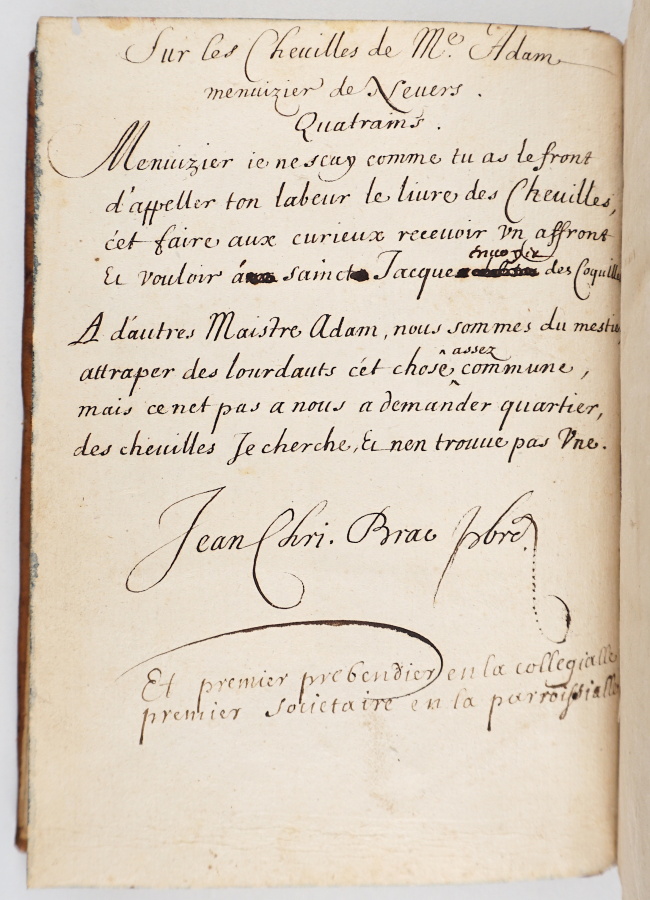 Sur les Cheuilles de Me. Adam
menuizier de Neuers.
Quatrains.
Menuizier ie ne scay comme tu as le front
d'appeller ton labeur le liure des Cheuilles,
c'et faire aux curieux receuoir vn affront
enuoyer
Et vouloir á sainct Jacque des Coquilles
A d'autres Maistre Adam, nous sommes du mestier
assez
attraper des lourdauts c'ét chose commune,
mais ce net pas a nous a demander quartier,
des cheuilles Je cherche, Et nen trouue pas Vne.
Jean Chri. Brac pbre.
Et premier prebendier en la collegialle
premier societaire en la parroissialle